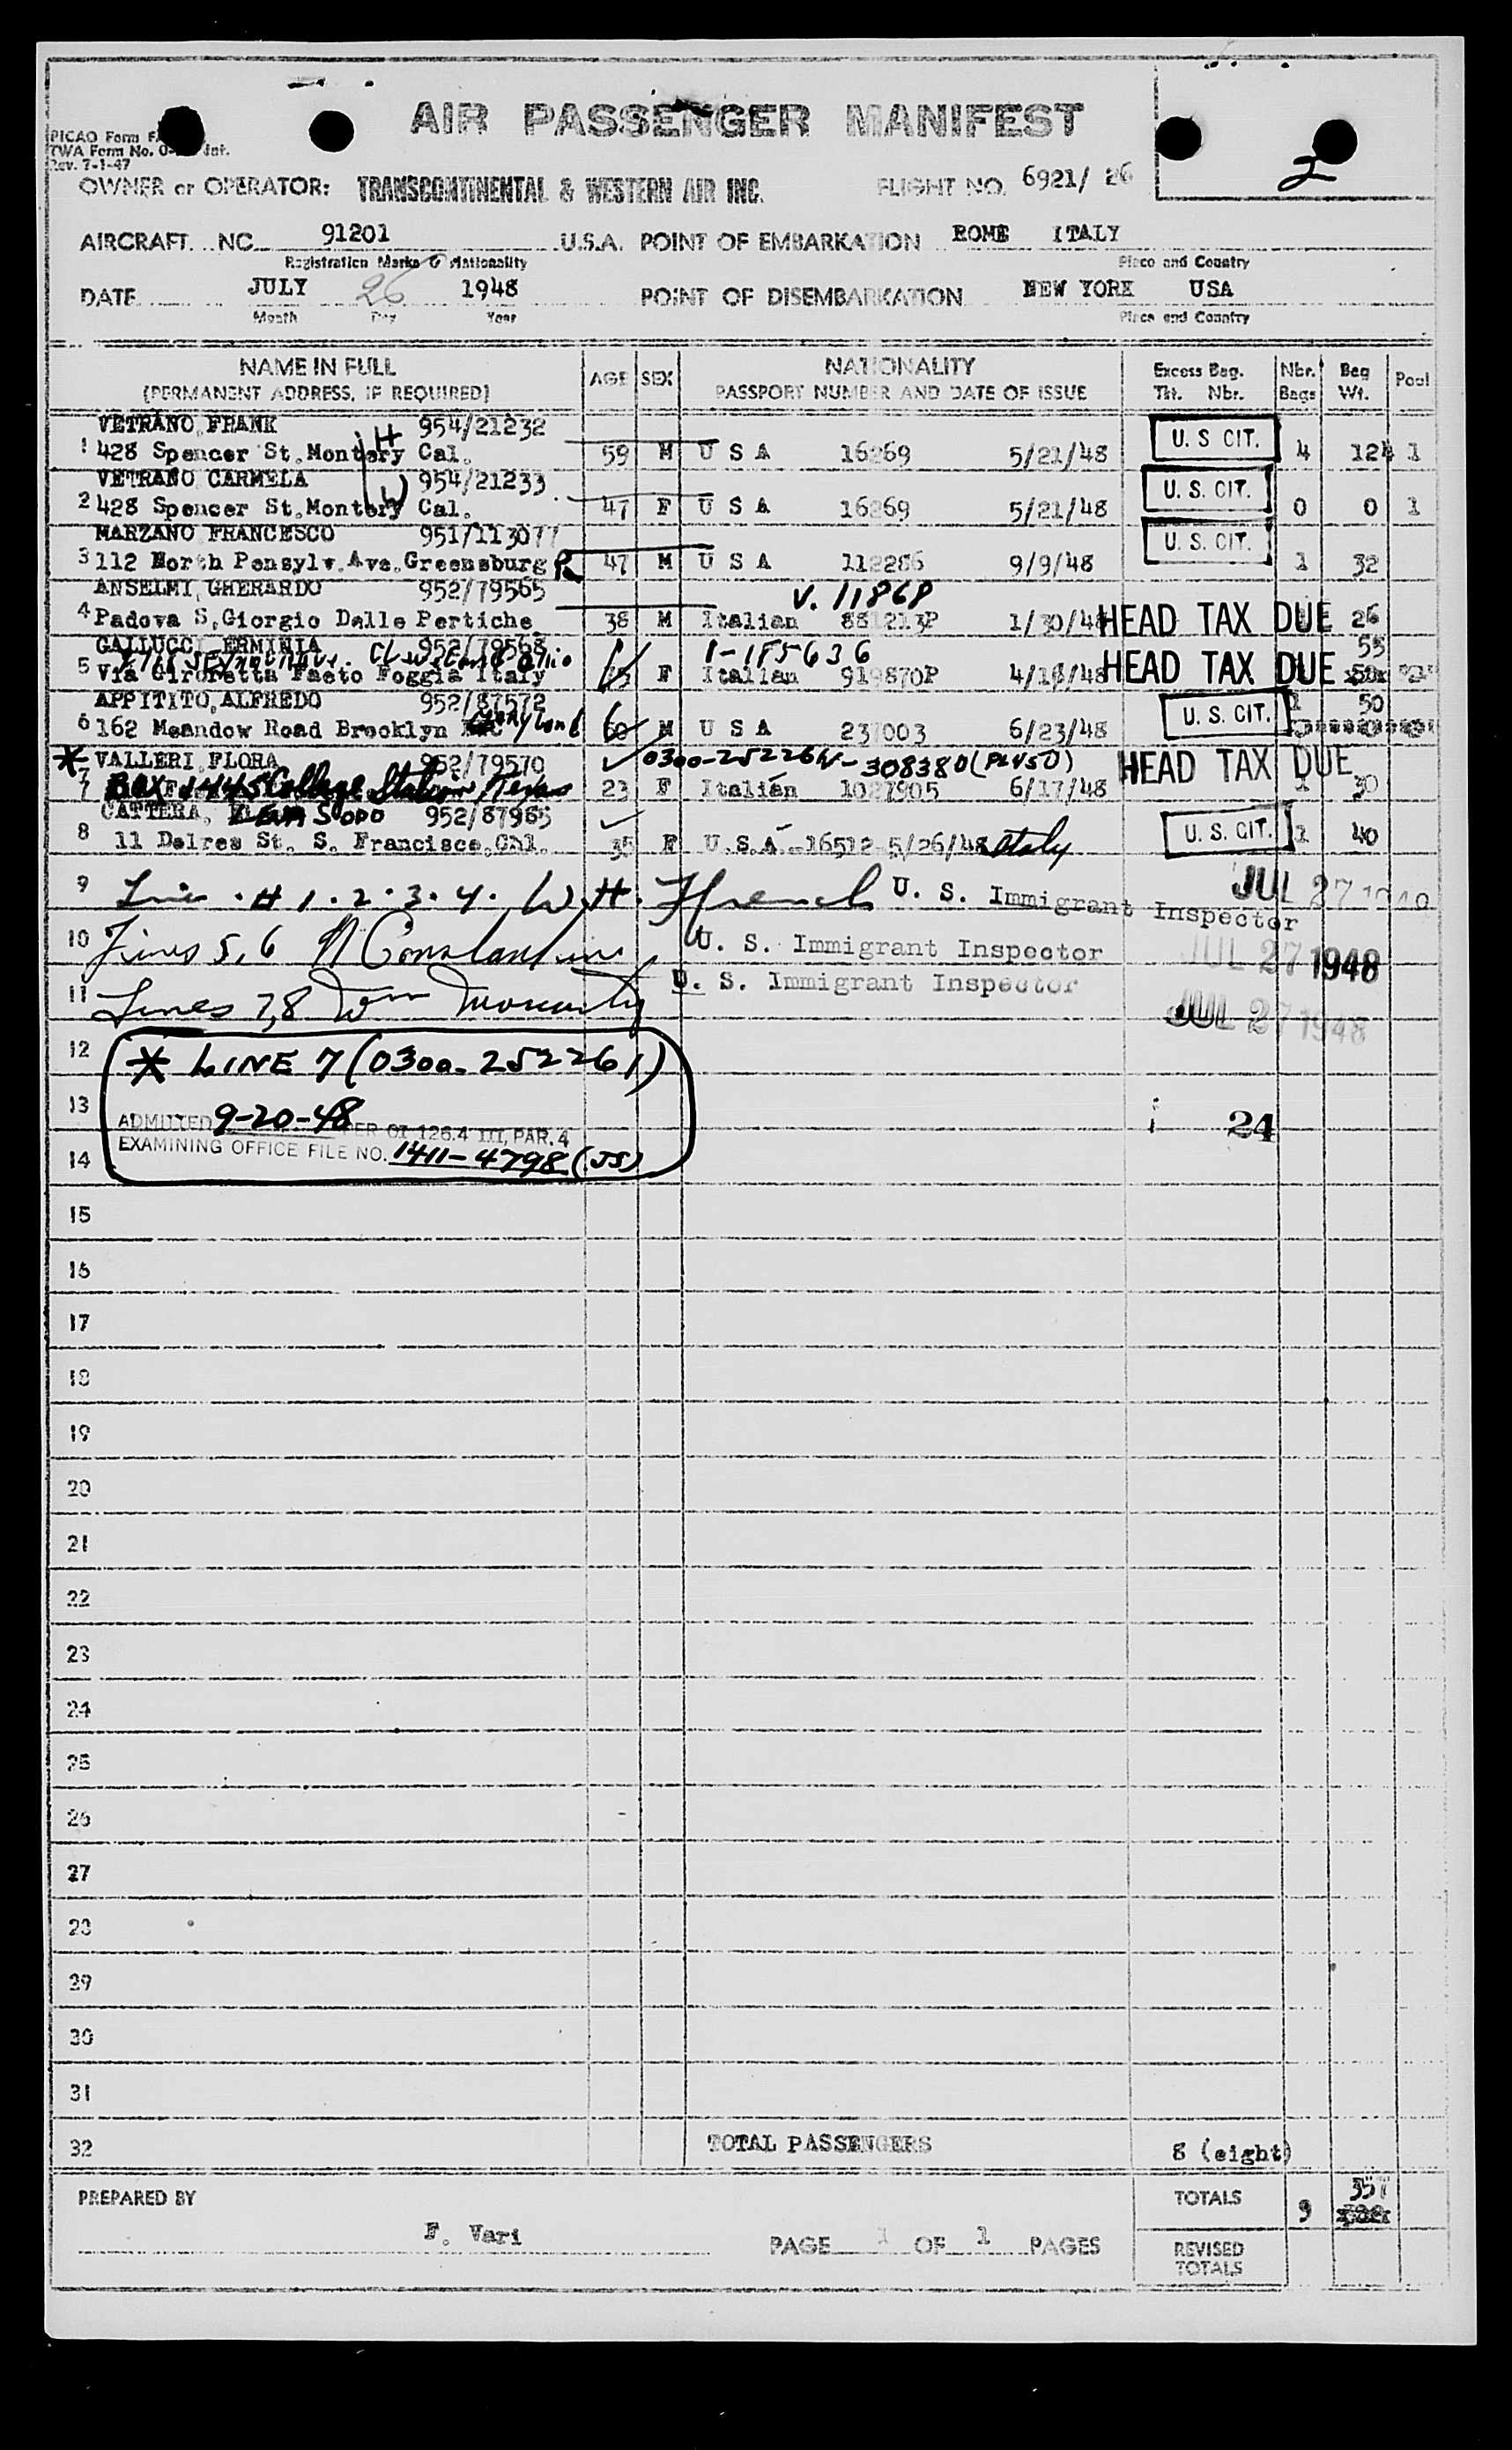 AIR PASSENGER MANIFEST
PICAO Form
TWA Form No.
Rev. 7-1-47
2
OWNER or OPERATOR: TRANSCONTINENTAL & WESTERN AIR INC. FLIGHT NO. 6921/ 26
AIRCRAFT NC 91201 U.S.A. POINT OF EMBARKATION ROME ITALY
Registration Marks & Nationality Place and Country
DATE JULY 26 1948 POINT OF DISEMBARKATION NEW YORK USA
Month Day Year Place and Country
NAME IN FULL AGE SEX NATIONALITY Excess Bag. Nbr. Bag Pool
(PERMANENT ADDRESS, IF REQUIRED) PASSPORT NUMBER AND DATE OF ISSUE Tkt. Nbr. Bags Wt.
VETRANO FRANK H 954/21232 U. S CIT.
1 428 Spencer St.Montery Cal. 59 M U S A 16269 5/21/48 4 124 1
VETRANO CARMELA W 954/21233 U. S. CIT.
2 428 Spencer St.Montery Cal. 47 F U S A 16269 5/21/48 0 0 1
MARZANO FRANCESCO 951/113077 U. S. CIT.
3 112 North Pensylv.Ave.Greensburg Pa 47 M U S A 112286 9/9/48 1 32
ANSELMI, GHERARDO 952/79565 V. 11868
4 Padova S,Giorgio Delle Pertiche 38 M Italian 881213P 1/30/48 HEAD TAX DUE 26
GALLUCCI ERMINIA 952/79568 1-185636 55
5 Via Giroretta Faeto Foggia Italy F Italian 919870P 4/16/48 HEAD TAX DUE
APPITITO,ALFREDO 952/87572 U. S. CIT. 1 50
6 162 Meandow Road Brooklyn 60 M U S A 237003 6/23/48
* VALLERI FLORA 952/79570 0300-252261 V-308380 (PL450) HEAD TAX DUE
7 Box 1445 College Station, Texas 23 F Italian 1027905 6/17/48 1 30
CATTERA, 952/87965 U. S. CIT.
8 11 Delres St. S. Francisco,Cal. 35 F U.S.A. 16512 5/26/48 Italy 1 40
9 Line # 1.2.3.4. W.H. French U. S. Immigrant Inspector JUL 27 1948
10 Lines 5,6 N Constantine U. S. Immigrant Inspector JUL 27 1948
11 Lines 7,8 Wm U. S. Immigrant Inspector JUL 27 1948
12 * LINE 7 (0300-252261)
13 ADMITTED 9-20-48 PER OI 126.4 III, PAR. 4 24
14 EXAMINING OFFICE FILE NO. 1411-4798 (JS)
15
16
17
18
19
20
21
22
23
24
25
26
27
28
29
30
31
32 TOTAL PASSENGERS 8 (eight)
PREPARED BY TOTALS 9 357
F. Vari PAGE 1 OF 1 PAGES REVISED
TOTALS